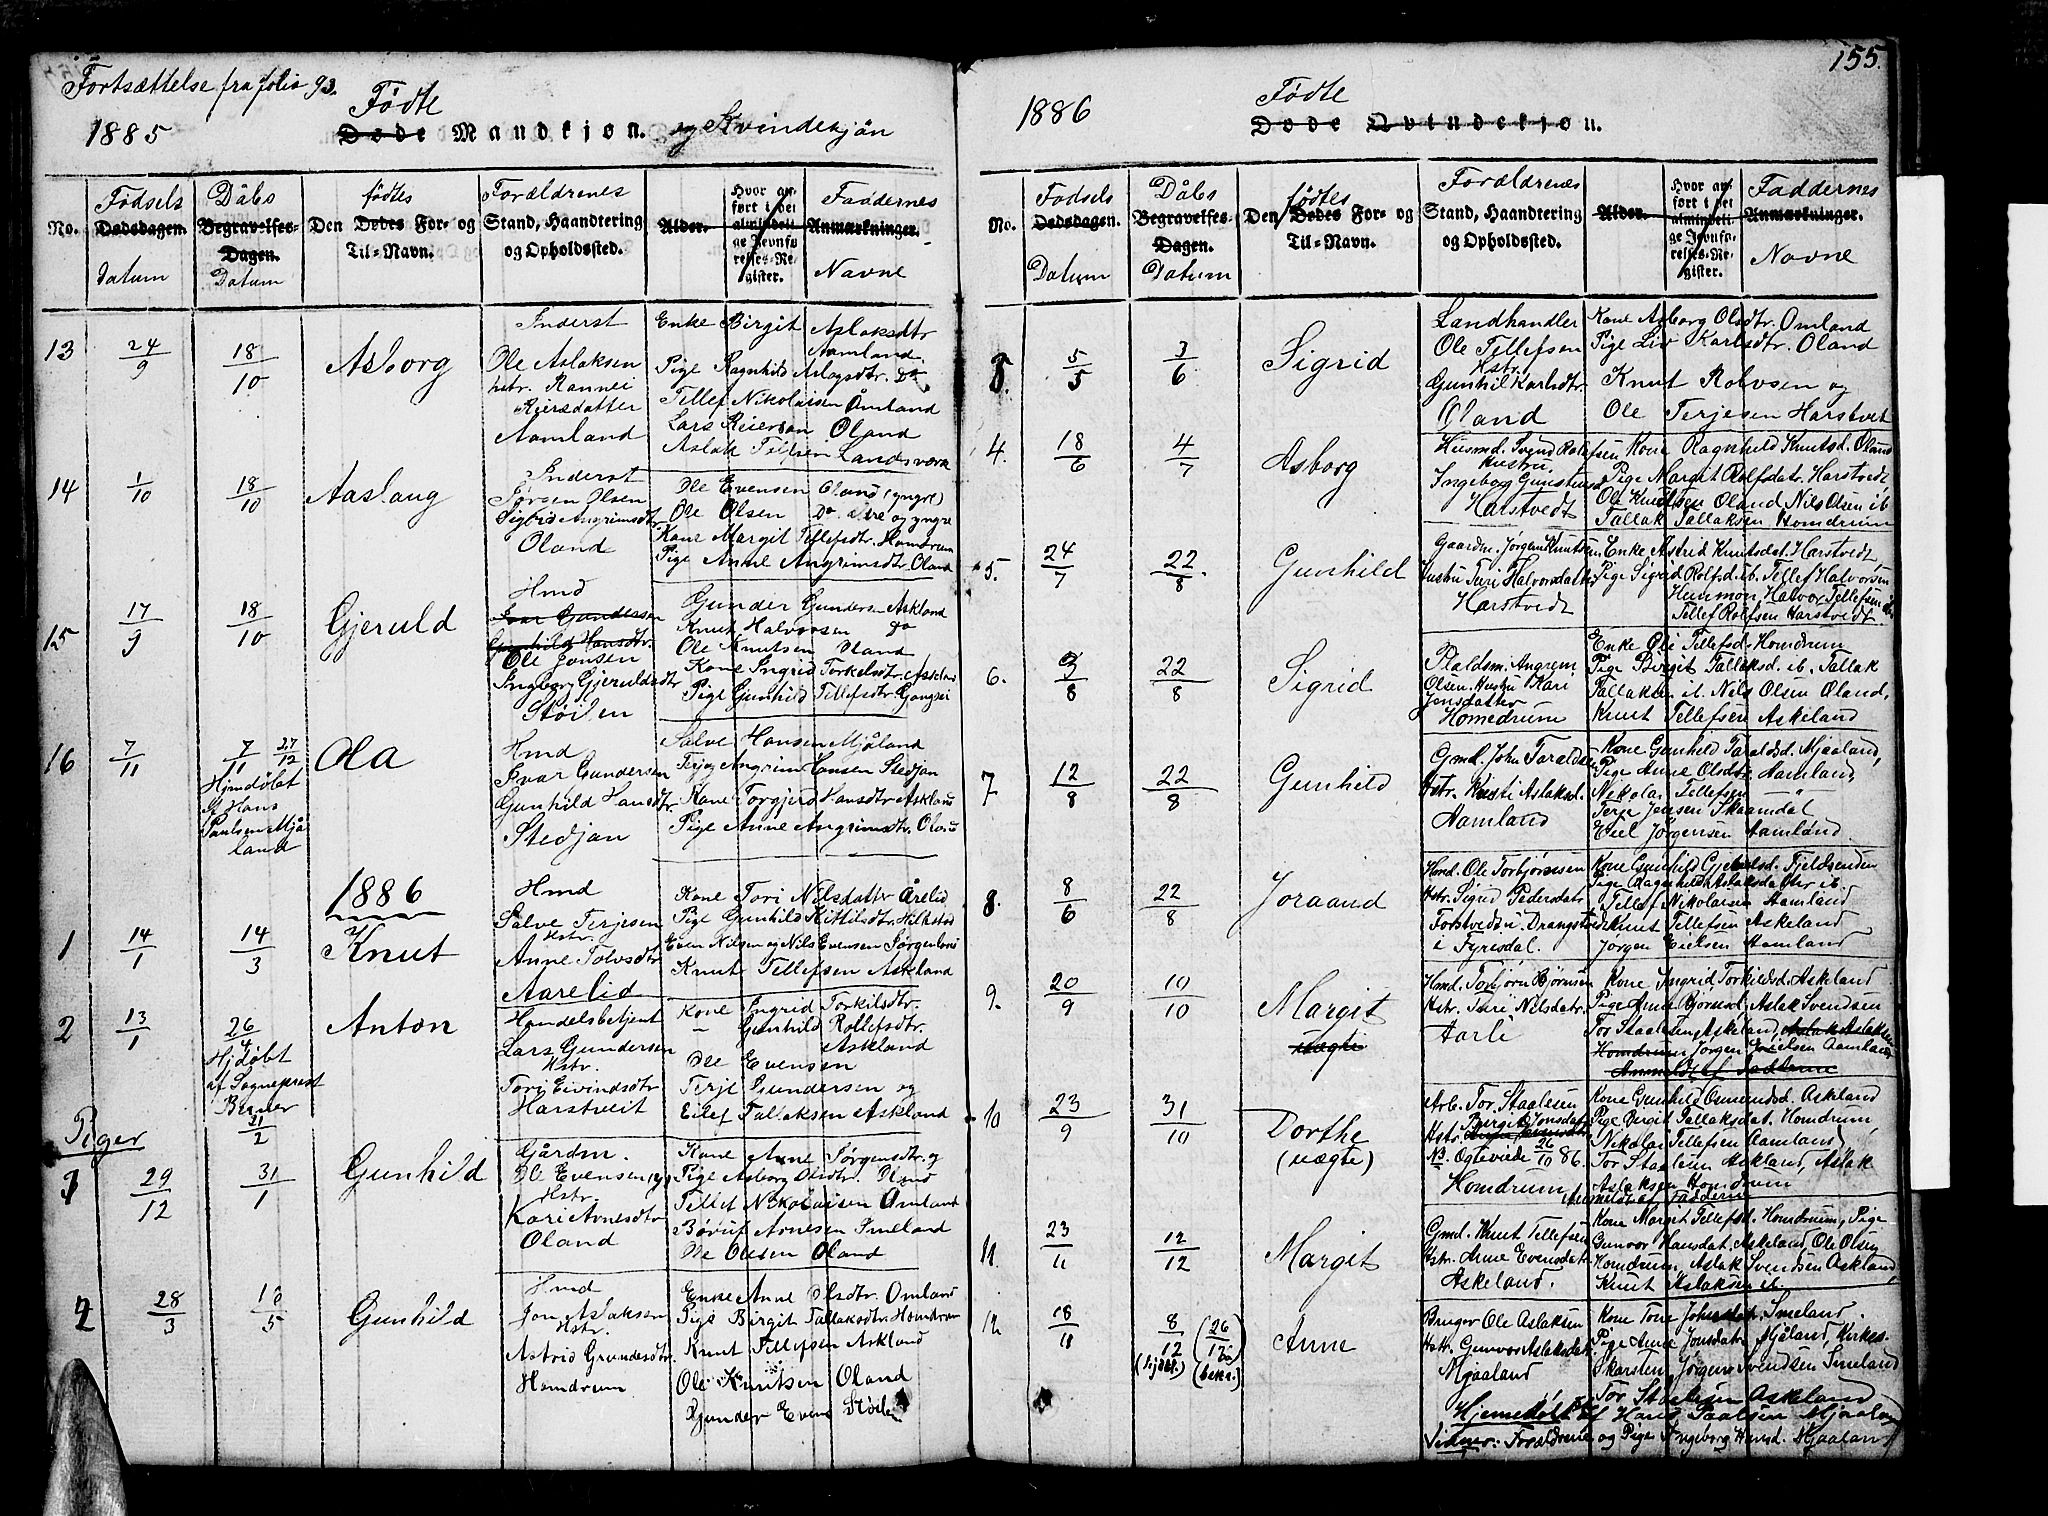 Fortsættelse fra folio 93.
1885
Fødte
Døde Mandkjøn. og Kvindekjøn
No.
Fødsels
Dødsdagen.
Datum
Dåbs
Begravelses-
Dagen.
Datum
fødtes
Den Dødes For- og
Til-Navn.
Forældrenes
Stand, Haandtering
og Opholdssted.
Alder.
Hvor an-
ført i det
almindeli-
ge Jevnfø-
relses-Re-
gister.
Faddernes
Anmærkninger.
Navne
13
24/9
18/10
Aasborg
Inderst
Ole Aslaksen
hstr. Rannei
Reiersdatter
Aamland
Enke Birgit Aslaksdtr
Aamland.
Pige Ragnhild Aslagsdtr. Do
Tellef Nikolaisen Åmland
Lars Reiersen Øland
Aslak Tellefsen Landsværk
14
1/10
18/10
Aaslaug
Inderst
Jørgen Olsen
Sigrid Angrimsdtr
Oland
Ole Evensen Oland (yngre)
Ole Olsen Do Øvre og yngre
Kone Margit Tellefsdtr. Homdrum
Pige Anne Angrimsdtr Oland
15
17/9
18/10
Gjeruld
Hmd
Ivar Gundersen
Gunhild Hansdtr.
Ole Jonsen
Ingborg Gjeruldsdtr
Støilen
Gunder Gundersen Askland
Knut Halvorsen Do
Ole Knutsen Oland
Kone Ingrid Torkelsdtr. Askeland
Pige Gunhild Tellefsdtr Gangsei
16
7/11
7/11 27/12
Hjmdøbt
af Hans
Paulsen Mjå
land
Ola
Hmd
Ivar Gundersen
Gunhild Hansdtr
Stedjan
Salve Hansen Mjåland
Terje Angrim Hansen Stedjan
Kone Torgjerd Hansdtr Askland
Pige Anne Angrimsdtr. Oland
1886
1
14/1
14/3
Knut
Hmd
Salve Terjesen
Hstr.
Anne Tolvsdtr
Aarelid
Kone Tori Nilsdatter Årelid
Pige Gunhild Kittilsdtr.
Even Nilsen og Nils Evensen
Knut Tellefsen Askland
2
13/1
26/4
Hjdøbt
af Sogneprest
Anton
Handelsbetjent
Lars Gundersen
Hstr.
Tori Eivindsdtr
Harstveit
Kone Ingrid Torkilsdtr.
— Gunhild Rollefsdtr.
Askland
Ole Evensen
Terje Gundersen og
Eilef Tallaksen Askland
21/2
Piger
1
29/12
31/1
Gunhild
Gårdm.
Ole Evensen
Hstr.
Kari Arnesdtr
Oland
Kone Anne Jørgensdtr. og
Pige Asborg Olsdtr. Oland
Tellef Nikolaisen Omland
Børuf Arnesen Smeland
Ole Olsen Oland
2
28/3
16/5
Gunhild
Hmd
Jon Aslaksen
Hstr.
Astrid Grundesdtr.
Homdrum
Enke Anne Olsdtr. Omland
Pige Birgit Tallaksdtr Homdrum
Knut Tellefsen Askland
Ole Knutsen Oland
Gunder Evens Støilen
155.
1886
Fødte
Døde Qvindekjøn.
No.
Fødsels
Dødsdagen.
Datum
Dåbs
Begravelses-
Dagen.
Datum
fødtes
Den Dødes For- og
Til-Navn.
Forældrenes
Stand, Haandtering
og Opholdssted.
Alder.
Hvor an-
ført i det
almindeli-
ge Jevnfø-
relses-Re-
gister.
Faddernes
Anmærkninger.
Navne
3.
5/5
3/6
Sigrid
Landhandler
Ole Tellefsen
Hstr.
Gunhil Karlsdtr.
Øland
Kone Asborg Olsdtr. Omland
Pige Liv Karlsdtr. Oland
Knut Rolvsen og
Ole Terjesen Harstvet
4.
18/6
4/7
Asborg
Husmd. Svend Rolefsen
Hustru.
Ingeborg Gunstensd
Harstvedt
Kone Ragnhild Knutsd. Øland
Pige Margit Rolfsdatr. Harstvedt
Ole Knudsen Øland Nils Olsen ib
Tallak Tallaksen Homdrum
5.
24/7
22/8.
Gunhild
Gaardm. Jørgen Knutsen
Hustru Turi Halvorsdatter
Harstvedt
Enke Astrid Knutsdat. Harstvedt,
Pige Sigrid Rolfsd. ib. Tellef Halvorsen
Halvor Tellefsen
Tellef Rolfsen Harstvedt
6.
3/8
22/8
Sigrid
Pladsm. Angrem
Olsen. Hustru Kari
Jensdatter
Homedrum
Enke Oli Tellefsd. Homdrum
Pige Birgit Tallaksd. ib. Tallak
Tallaks. ib. Nils Olsen Øland,
Knut Tellefsen Askeland
7
12/8
22/8
Gunhild
Gmd. John Taraldsen
Hstr. Kristi Aslaksd.
Aamland
Kone Gunhild Taraldsd. Mjaaland,
Pige Anne Olsdtr. Aamland,
Nikolai Tellefsen —"—
Terje Jensen Skaamdal
Eiel Jørgensen Aamland.
8.
8/6
22/8
Joraand
Hmd. Ole Torbjørnsen
Hstr. Sigrid Pedersdatr.
Forstvedt i Drangstvedt
i Fyresdal.
Kone Gunhild Gjeruldsd.
Pige Ragnhild Aslaksdatter ib.
Tellef Nikolaisen Aamland
Knut Tellefsen Askeland
Jørgen Eielsen Aamland
9.
20/9
10/10
Margit
uægte
Hmd. Torbjørn Bjørnsen
Hstr. Turi Nilsdatr.
Aarli
Kone Ingrid Torkildsd. Askeland
Pige Anne Bjørnsd, Aslak Svendsen
Tor Staalesen Askeland, Aslak Aslaksen
Homdrum Jørgen Eielsen Aamland
Anmeldt af Fadderne
10
23/9
31/10
Dorthe
(uægte)
Arb. Tor Staalesen
Birgit Jonsdatr
Hstr.
NB. Ogteviede 26/10 86.
Homdrum
Kone Gunhild Osmundsd. Askeland
Pige Birgit Tallaksdat. Homdrum,
Nikolai Tellefsen Aamland,
Tor Staalesen Askeland, Aslak
Aslaksen Homdrum
Anmeldt af Fadderne
11.
23/11
12/12
Margit
Gmd. Knut Tellefsen
Hstr. Anne Evensdatr.
Askeland.
Kone Margit Tellefsd. Homdrum, Pige
Gunvor Hansdat. Askeland Ole Olsen
Homdrum, Aslak Svendsen Askeland,
Knut Aslaksen ib.
12
18/11
8/12
(hjdøbt.)
(26/12)
(bekr.)
Anne
Bruger Ole Aslaksen
Hstr. Gunvor Aslaksdatr.
Mjaaland
Kone Tone Johnsdat. Smeland
Pige Anne Jonsdatr Mjåland, Kirkes.
Skarsten, Jørgen Svendsen Smeland
Tor Staalesen Askeland
Hjemedøbt af Hans Paalsen Mjaaland
Vidner: Forældrene og Pige Ingeborg Hansd. Mjaaland